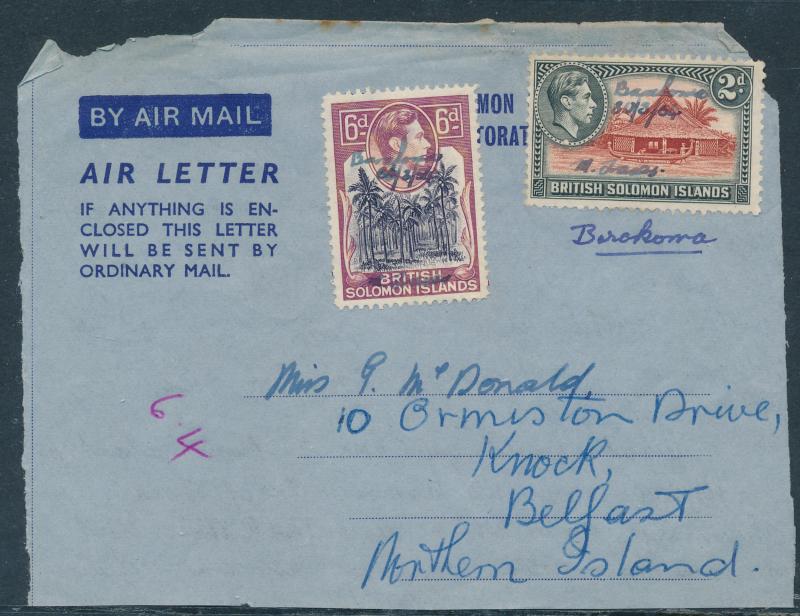 BY AIR MAIL
AIR LETTER
IF ANYTHING IS EN-
CLOSED THIS LETTER
WILL BE SENT BY
ORDINARY MAIL.
MON
TORAT
6d 6d
BRITISH
SOLOMON ISLANDS
2d
BRITISH SOLOMON ISLANDS
Barakoma
6.4
Miss G. McDonald,
10 Ormiston Drive,
Knock,
Belfast
Northern Island.